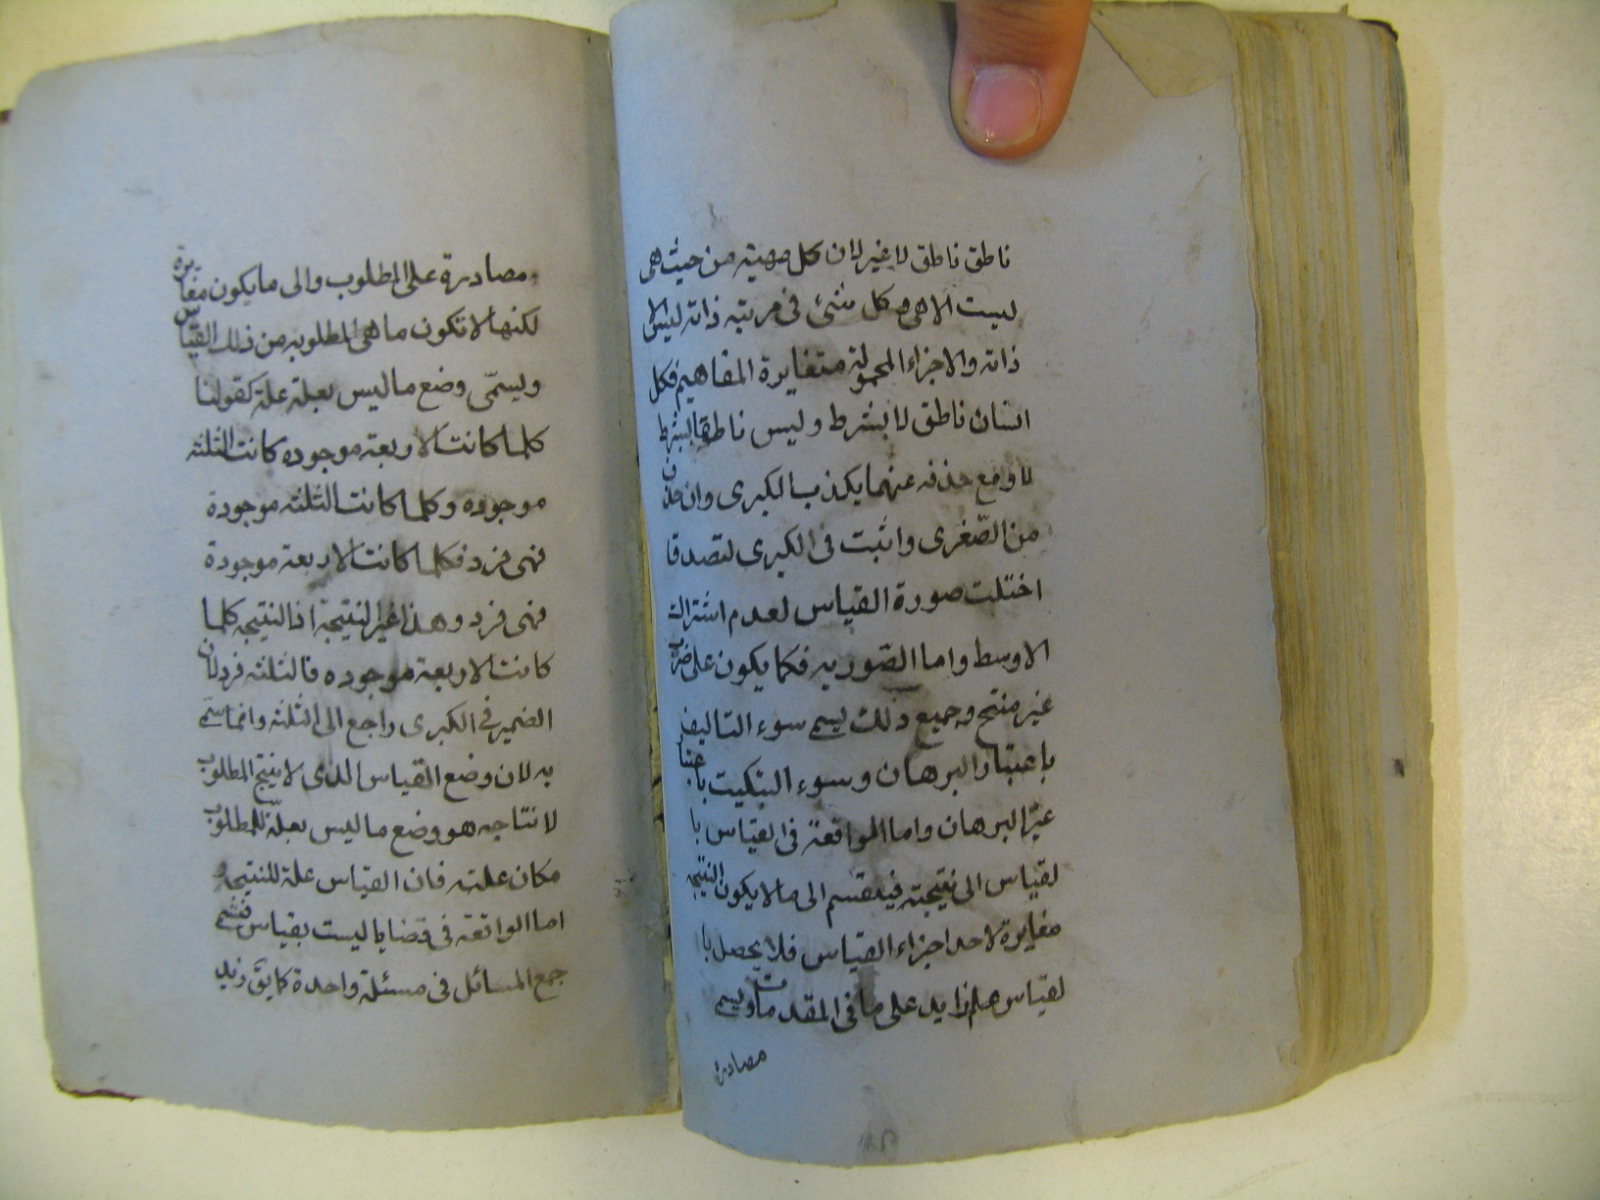 ناطق ناطق لا غير لان كل مهية من حيث هى
ليست الا هى و كل شئ فى مرتبة ذاته ليس الا
ذاته والاجزاء المحمولة متغايرة المفاهيم فكل
انسان ناطق لا بشرط وليس ناطقا بشرط
لا ومع حذفه عنهما يكذب الكبرى وان حذف
من الصّغرى واثبت فى الكبرى لتصدقا
اختلت صورة القياس لعدم اشتراك
الاوسط واما الصّورية فكما يكون على ضرب
غير منتج وجميع ذلك يسمى سوء التاليف
باعتبار البرهان وسوء التبكيت باعتبار
غير البرهان واما الواقعة فى القياس با
لقياس الى نتيجته فينقسم الى ما لا يكون النتيجة
مغايرة لاحد اجزاء القياس فلا يحصل با
لقياس علم زايد على ما فى المقدمات ويسمى
مصادرة
مصادرة على المطلوب والى ما يكون مغايرة
لكنها لا تكون ما هى المطلوبة من ذلك القياس
ويسمّى وضع ما ليس بعلة علة كقولنا
كلما كانت الاربعة موجوده كانت الثلثه
موجوده وكلما كانت الثلثه موجودة
فهى فرد فكلما كانت الاربعة موجودة
فهى فرد وهذا غير النتيجة اذ النتيجه كلما
كانت الاربعة موجوده فالثلثه فرد لان
الضمير فى الكبرى راجع الى الثلثه وانما سمّى
به لان وضع القياس الذى لا ينتج المطلوب
لانتاجه هو وضع ما ليس بعلّة للمطلوب
مكان علته فان القياس علة للنتيجه و
اما الواقعة فى قضايا ليست بقياس فتسمى
جمع المسائل فى مسئلة واحدة كما يقَ زيد